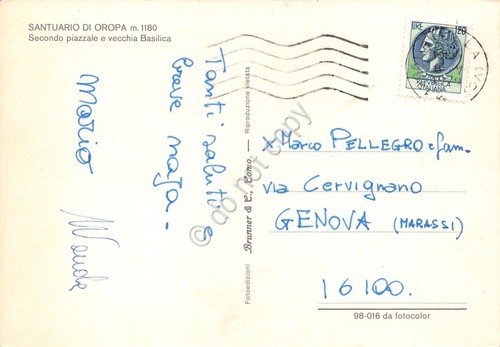 SANTUARIO DI OROPA m. 1180
Secondo piazzale e vecchia Basilica
Tanti saluti e
breve naja -
Mario
Wanda
Fotoedizioni Brunner & C. Como - Riproduzione vietata
LIRE 120
ITALIANA
x Marco PELLEGRO e fam.
via Cervignano
GENOVA (MARASSI)
16100.
98-016 da fotocolor
© do not copy